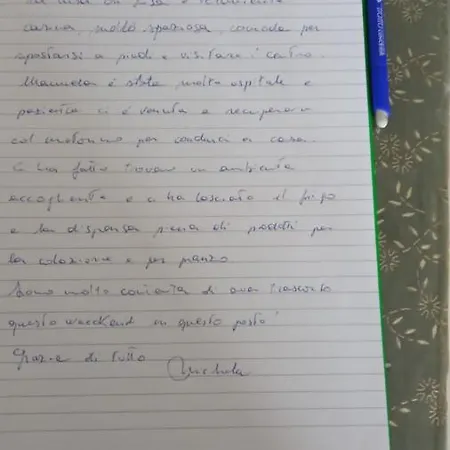 La casa di Lisa è veramente
carina, molto spaziosa, comoda per
spostarsi a piedi e visitare i centro.
Manuela è stata molto ospitale e
paziente ci è venuta a recuperare
col motorino per condurci a casa.
Ci ha fatto trovare un ambiente
accogliente e ci ha lasciato il frigo
e la dispensa piena di prodotti per
la colazione e per pranzo
Sono molto contenta di aver trascorso
questo weekend in questo posto!
Grazie di tutto
Michela